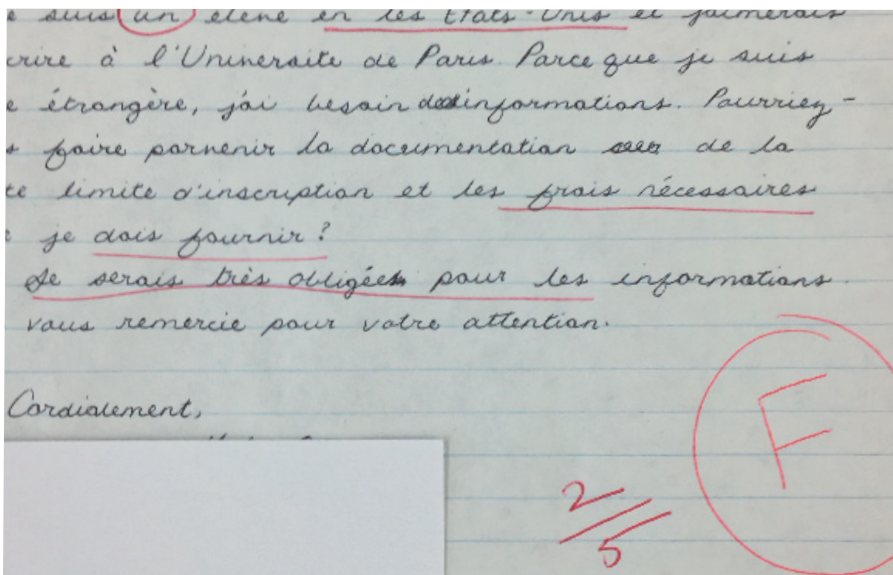 suis un élève en les États-Unis et j'aimerais
crire à l'Université de Paris. Parce que je suis
e étrangère, j'ai besoin des informations. Pourriez-
s faire parvenir la documentation de la
te limite d'inscription et les frais nécessaires
je dois fournir?
Je serais très obligée pour les informations.
vous remercie pour votre attention.
Cordialement,
2/5
F